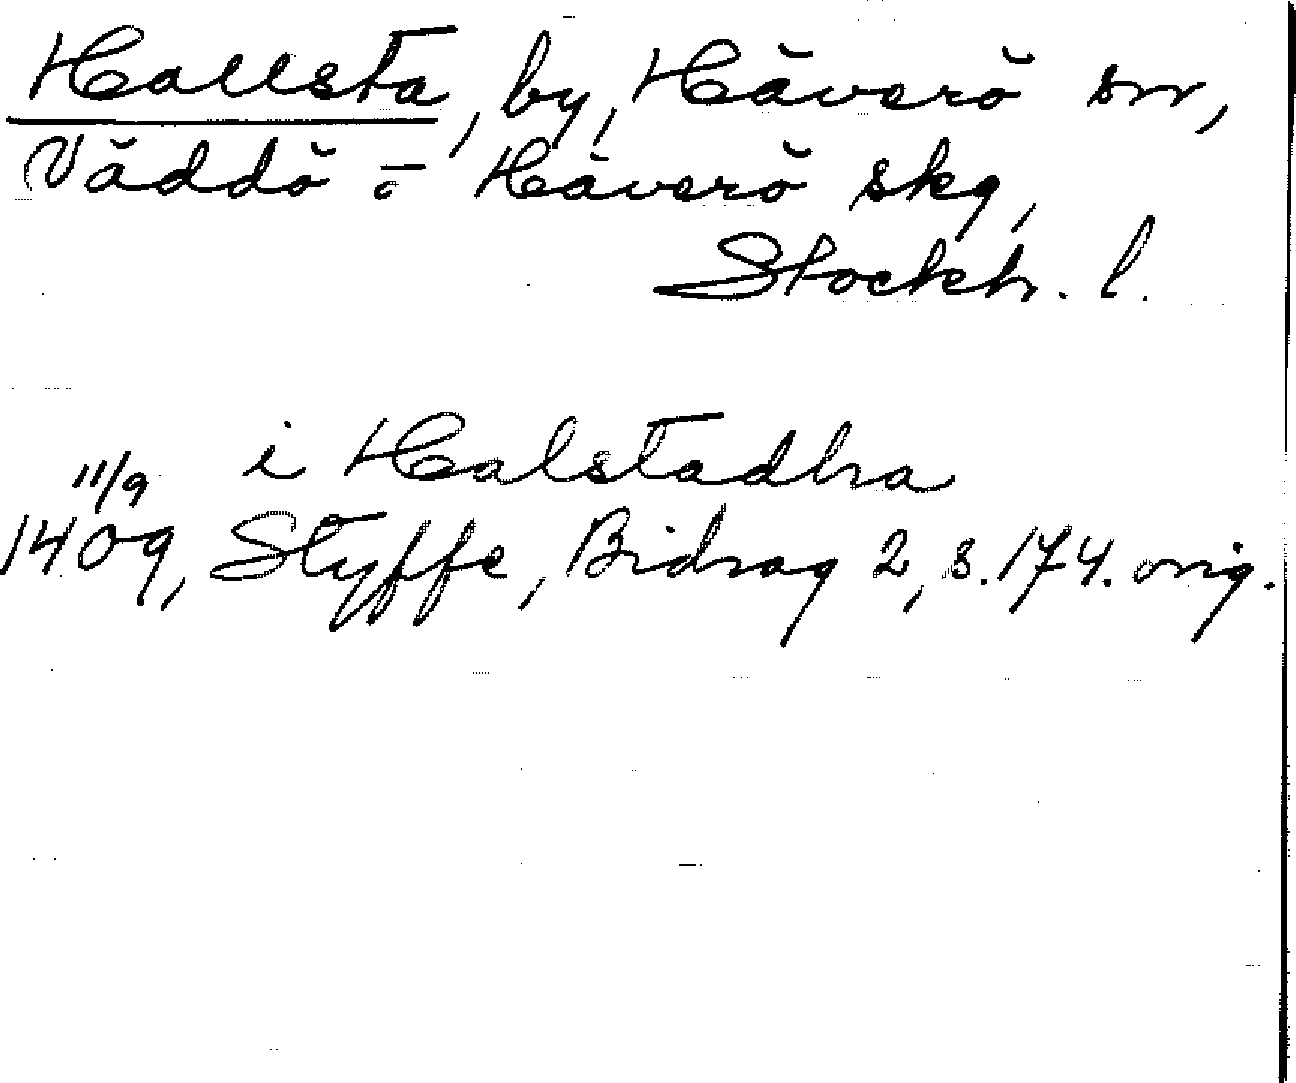 Hallsta, by, Häverö sn,
Väddö o Häverö skg,
Stockh. l.
i Halstadha
11/9
1409, Styffe, Bidrag 2, s. 174. orig.